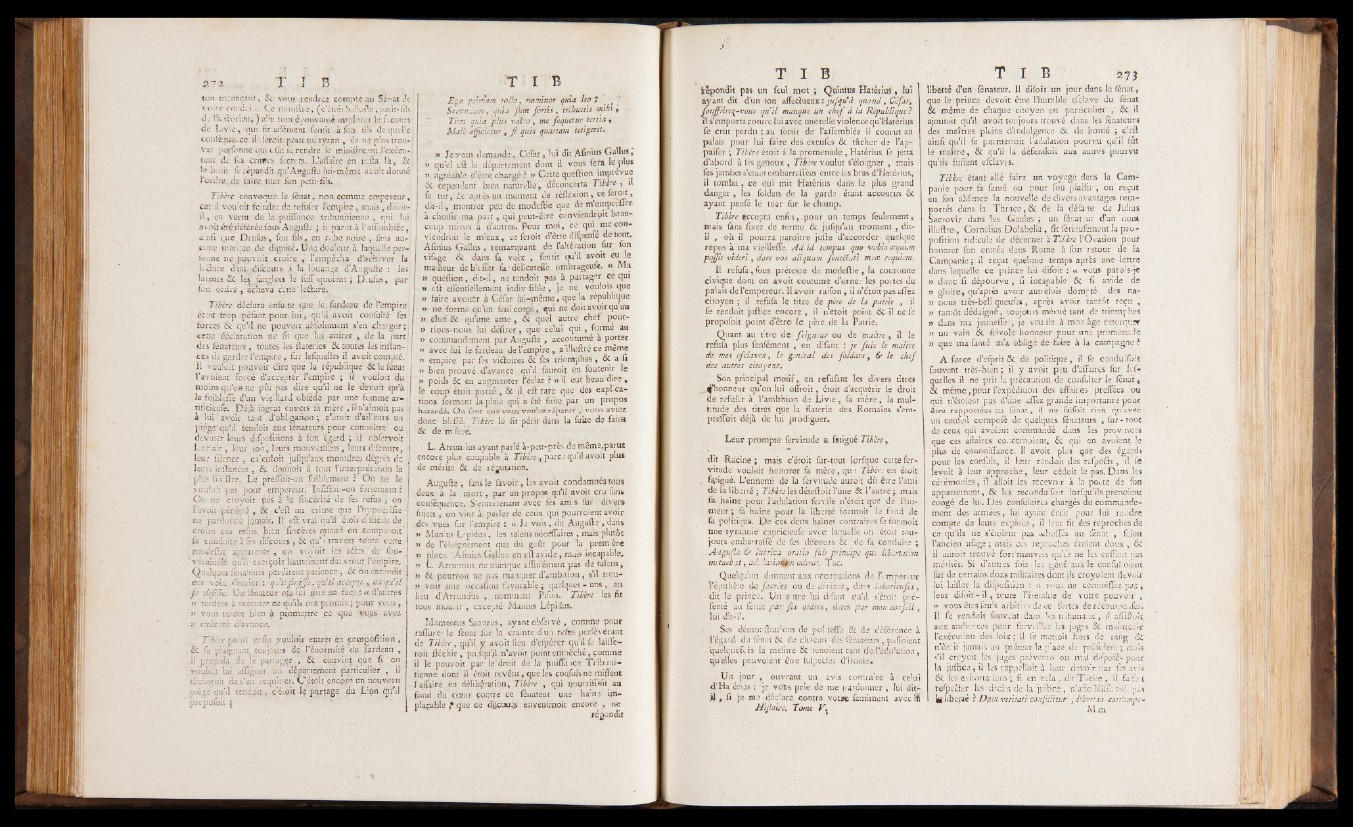 272 T I B
ton menaçant, & vous rendrez compte au Sénat de
votre conduite. Ce ministre, (c'étoit Salluste, petit-fils
de l'historien,) alla tout épouvanté implorer le secours
de Livie, qui fit aisément sentir à son fils de quelle
conséquence il seroit pour un tyran, de ne plus trou-
ver personne qui osât se rendre le ministre ou l'exécu-
teur de ses crimes secrets. L'affaire en resta là, &
le bruit se répandit qu'Auguste lui-même avoit donné
l'ordre de faire tuer son petit-fils.
Tibère convoque le sénat, non comme empereur,
car il vouloit feindre de refuser l'empire, mais, disoit-
il, en vertu de la puissance tribunitienne, qui lui
avoit été déférée sous Auguste; il parut à l'assemblée,
ainsi que Drusus, son fils, en robe noire, sans au-
cune marque de dignité. Une douleur à laquelle per-
sonne ne pouvoit croire, l'empêcha d'achever la
lecture d'un discours à la louange d'Auguste : les
larmes & les sanglots le suffoquoient; Drusus, par
son ordre, acheva cette lecture.
Tibère déclara ensuite que le fardeau de l'empire
étoit trop pésant pour lui, qu'il avoit consulté ses
forces & qu'il ne pouvoit absolument s'en charger;
cette déclaration ne fit que lui attirer, de la part
des sénateurs, toutes les flateries & toutes les instan-
ces de garder l'empire, sur lesquelles il avoit compté.
Il vouloit pouvoir dire que la république & le sénat
l'avoient forcé d'accepter l'empire; il vouloit du
moins qu'on ne pût pas dire qu'il ne le devoit qu'à
la foiblesse d'un vieillard obsédé par une femme ar-
tificieuse. Déjà ingrat envers sa mère, il n'aimoit pas
à lui avoir tant d'obligation; c'étoit d'ailleurs un
piége qu'il tendoit aux sénateurs pour connoître ou
deviner leurs dispositions à son égard; il observoit
leur air, leur ton, leurs mouvemens, leurs discours,
leur silence, calculoit jusqu'aux moindres dégrés de
leurs instances, & donnoit à tout l'interprétation la
plus sinistre. Le pressoit-on foiblement? On ne le
vouloit pas pour empereur. Insistoit-on fortement?
On ne croyoit pas à la sincérité de ses refus, on
l'avoit pénétré, & c'est un crime que l'hypocrisie
ne pardonne jamais. Il est vrai qu'il étoit difficile de
croire ces refus bien sincères quand on comparoit
sa conduite à ses discours, & qu'à travers toute cette
modestie apparente, on voyoit les actes de sou-
veraineté qu'il exerçoit hautement dans tout l'empire.
Quelques sénateurs perdirent patience, & on entendit
des voix s'écrier : qu'il finisse, qu'il accepte, ou qu'il
se désiste. Un sénateur osa lui dire en face: « d'autres
» tardent à exécuter ce qu'ils ont promis; pour vous,
» vous tardez bien à promettre ce que vous avez
» exécuté d'avance.
Tibère parut enfin vouloir entrer en composition,
& se plaignant toujours de l'énormité du fardeau,
il proposa de le partager, & convint que si on
vouloit lui assigner un département particulier, il
tâcheroit de s'en acquitter. C'étoit encore un nouveau
piége qu'il tendoit, c'étoit le partage du Lion qu'il
proposoit;
T I B
Ego primam tollo, nominor quia leo;
Secundam, quia sum fortis, tribuetis mihi;
Tum quia plus valeo, me sequetur tertia;
Malè afficietur, si quis quartam tetigerit.
» Je vous demande, César, lui dit Asinius Gallus,
» quel est le département dont il vous sera le plus
» agréable d'être chargé? » Cette question imprévue
& cependant bien naturelle, déconcerta Tibère, il
se tut, & après un moment de réflexion, ce seroit,
dit-il, montrer peu de modestie que de m'empresser
à choisir ma part, qui peut-être conviendroit beau-
coup mieux à d'autres. Pour moi, ce qui me con-
viendroit le mieux, ce seroit d'être dispensé de tout.
Asinius Gallus, remarquant de l'altération sur son
visage & dans sa voix, sentit qu'il avoit eu le
malheur de blesser sa délicatesse ombrageuse. « Ma
» question, dit-il, ne tendoit pas à partager ce qui
» est essentiellement indivisible, je ne voulois que
» faire avouer à César lui-même, que la république
» ne forme qu'un seul corps, qui ne doit avoir qu'un
» chef & qu'une ame, & quel autre chef pour-
» rions-nous lui désirer, que celui qui, formé au
» commandement par Auguste, accoutumé à porter
» avec lui le fardeau de l'empire, a illustré ce même
» empire par ses victoires & ses triomphes, & a si
» bien prouvé d'avance qu'il sauroit en soutenir le
» poids & en augmenter l'éclat? » il eut beau dire,
le coup étoit porté, & il est rare que des explica-
tions ferment la plaie qui a été faite par un propos
hazardé. On sent que vous voulez réparer, vous aviez
donc blessé. Tibère le fit périr dans la suite de faim
& de misère.
L. Arruntius ayant parlé à-peu-près de même, parut
encore plus coupable à Tibère, parce qu'il avoit plus
de mérite & de réputation.
Auguste, sans le savoir, les avoit condamnés tous
deux à la mort, par un propos qu'il avoit cru sans
conséquence. S'entretenant avec ses amis sur divers
sujets, on vint à parler de ceux qui pourroient avoir
des vues sur l'empire: « Je vois, dit Auguste, dans
» Manius Lépidus, les talens nécessaires, mais plutôt
» de l'éloignement que du goût pour la première
» place. Asinius Gallus en est avide, mais incapable.
» L. Arruntius ne manque assurément pas de talens,
» & pourroit ne pas manquer d'ambition, s'il trou-
» voit une occasion favorable; quelques-uns, au
lieu d'Arruntius, nomment Pison. Tibère les fit
tous mourir, excepté Manius Lépidus.
Mamercus Scaurus, ayant observé, comme pour
rassurer le sénat sur la crainte d'un refus persévérant
de Tibère, qu'il y avoit lieu d'espérer qu'il se laisse-
roit fléchir, puisqu'il n'avoit point empêché, comme
il le pouvoit par le droit de la puissance Tribuni-
tienne dont il étoit revêtu, que les consuls ne missent
l'affaire en délibération, Tibère, qui nourrissoit au
fond du cœur contre ce sénateur une haine im-
placable, que ce discours envenimoit encore, ne
répondit
T I B
répondit pas un seul mot; Quintus Hatérius, lui
ayant dit d'un ton affectueux: jusqu'à quand, César,
souffrirez-vous qu'il manque un chef à la République?
Il s'emporta contre lui avec une telle violence qu'Hatérius
se crut perdu: au sortir de l'assemblée il courut au
palais pour lui faire des excuses & tâcher de l'ap-
paiser; Tibère étoit à la promenade, Hatérius se jetta
d'abord à ses genoux, Tibère voulut s'éloigner, mais
ses jambes s'étant embarrassées entre les bras d'Hatérius,
il tomba, ce qui mit Hatérius dans le plus grand
danger, les soldats de la garde étant accourus &
ayant pensé le tuer sur le champ.
Tibère accepta enfin, pour un temps seulement,
mais sans fixer de terme & jusqu'au moment, dit-
il, où il pourra paroître juste d'accorder quelque
repos à ma vieillesse. Ad id tempus quo vobis æquum
possit videri, dare vos aliquam senectuti meæ requiem.
Il refusa, sous prétexte de modestie, la couronne
civique dont on avoit coutume d'orner les portes du
palais de l'empereur. Il avoit raison, il n'étoit pas assez
citoyen; il refusa le titre de père de la patrie, il
se rendoit justice encore, il n'étoit point & il ne se
proposoit point d'être le père de la Patrie.
Quant au titre de seigneur ou de maître, il le
refusa plus sensément, en disant: je suis le maître
de mes esclaves, le général des soldats, & le chef
des autres citoyens.
Son principal motif, en refusant les divers titres
d'honneur qu'on lui offroit, étoit d'acquérir le droit
de refuser à l'ambition de Livie, sa mère, la mul-
titude des titres que la flaterie des Romains s'em-
pressoit déjà de lui prodiguer.
Leur prompte servitude a fatigué Tibère,
dit Racine; mais c'étoit sur-tout lorsque cette ser-
vitude vouloit honorer sa mère, que Tibère en étoit
fatigué. L'ennemi de la servitude auroit dû être l'ami
de la liberté; Tibère les détestoit l'une & l'autre; mais
sa haine pour l'adulation servile n'étoit que de l'hu-
meur; sa haine pour la liberté formoit le fond de
sa politique. De ces deux haines contraires se formoit
une tyrannie capricieuse avec laquelle on étoit tou-
jours embarrassé de ses discours & de sa conduite;
Angusta & lubrica oratio sub principe qui libertatem
metuebat, adulationem oderat. Tac.
Quelqu'un donnant aux occupations de l'empereur
l'épithète de sacrées ou de divines, dites laborieuses,
dit le prince. Un autre lui disant qu'il s'étoit pré-
senté au sénat par ses ordres, dites par mon conseil,
lui dit-il.
Ses démonstrations de politesse & de déférence à
l'égard du sénat & de chacun des sénateurs, passoient
quelquefois la mesure & tenoient tant de l'adulation,
qu'elles pouvoient être suspectes d'ironie.
Un jour, ouvrant un avis contraire à celui
d'Hatérius: je vous prie de me pardonner, lui dit-
il, si je me déclare contre votre sentiment avec la
Histoire. Tome V.
T I B 273
liberté d'un sénateur. Il disoit un jour dans le sénat,
que le prince devoit être l'humble esclave du sénat
& même de chaque citoyen en particulier, & il
ajoutoit qu'il avoit toujours trouvé dans les sénateurs
des maîtres pleins d'indulgence & de bonté; c'est
ainsi qu'il se permettoit l'adulation pourvu qu'il fût
le maître, & qu'il la défendoit aux autres pourvu
qu'ils fussent esclaves.
Tibère étant allé faire un voyage dans la Cam-
panie pour sa santé ou pour son plaisir, on reçut
en son absence la nouvelle de divers avantages rem-
portés dans la Thrace, & de la défaite de Julius
Sacrovir dans les Gaules; un sénateur d'un nom
illustre, Cornelius Dolabella, fit sérieusement la pro-
position ridicule de décerner à Tibère l'Ovation pour
honorer son entrée dans Rome à son retour de la
Campanie; il reçut quelque temps après une lettre
dans laquelle ce prince lui disoit: « vous parois-je
» donc si dépourvu, si incapable & si avide de
» gloire, qu'après avoir autrefois dompté des na-
» tions très-belliqueuses, après avoir tantôt reçu,
» tantôt dédaigné, toujours mérité tant de triomphes
» dans ma jeunesse, je veuille à mon âge extorquer
» un vain & frivole honneur pour une promenade
» que ma santé m'a obligé de faire à la campagne?
A force d'esprit & de politique, il se conduisoit
souvent très-bien; il y avoit peu d'affaires sur les-
quelles il ne prît la précaution de consulter le sénat,
& même, pour l'expédition des affaires pressées ou
qui n'étoient pas d'une assez grande importance pour
être rapportées au sénat, il ne faisoit rien qu'avec
un conseil composé de quelques sénateurs, sur-tout
de ceux qui avoient commandé dans les provinces
que ces affaires concernoient, & qui en avoient le
plus de connoissance. Il avoit plus que des égards
pour les consuls, il leur rendoit des respects, il se
levoit à leur approche, leur cédoit le pas. Dans les
cérémonies, il alloit les recevoir à la porte de son
appartement, & les reconduisoit lorsqu'ils prenoient
congé de lui. Des consulaires chargés du commande-
ment des armées, lui ayant écrit pour lui rendre
compte de leurs exploits, il leur fit des reproches de
ce qu'ils ne s'étoient pas adressés au sénat, selon
l'ancien usage; mais ces reproches étoient doux, &
il auroit trouvé fort mauvais qu'ils ne les eussent pas
mérités. Si d'autres fois les généraux le consultoient
sur de certains dons militaires dont ils croyoient devoir
lui laisser la disposition: « vous ne connoissez pas,
leur disoit-il, toute l'étendue de votre pouvoir,
» vous êtes seuls arbitres de ces sortes de récompenses.
Il se rendoit souvent dans les tribunaux, il assistoit
aux audiences pour surveiller les juges & maintenir
l'exécution des loix; il se mettoit hors de rang &
n'ôtoit jamais au préteur la place de président; mais
s'il croyoit les juges prévenus ou mal disposés pour
la justice, il les rappelloit à leur devoir par ses avis
& ses exhortations; si en cela, dit Tacite, il faisoit
respecter les droits de la justice, n'affoiblissoit-il pas
la liberté? Dum veritati consulitur, libertas corrumpe-
M m